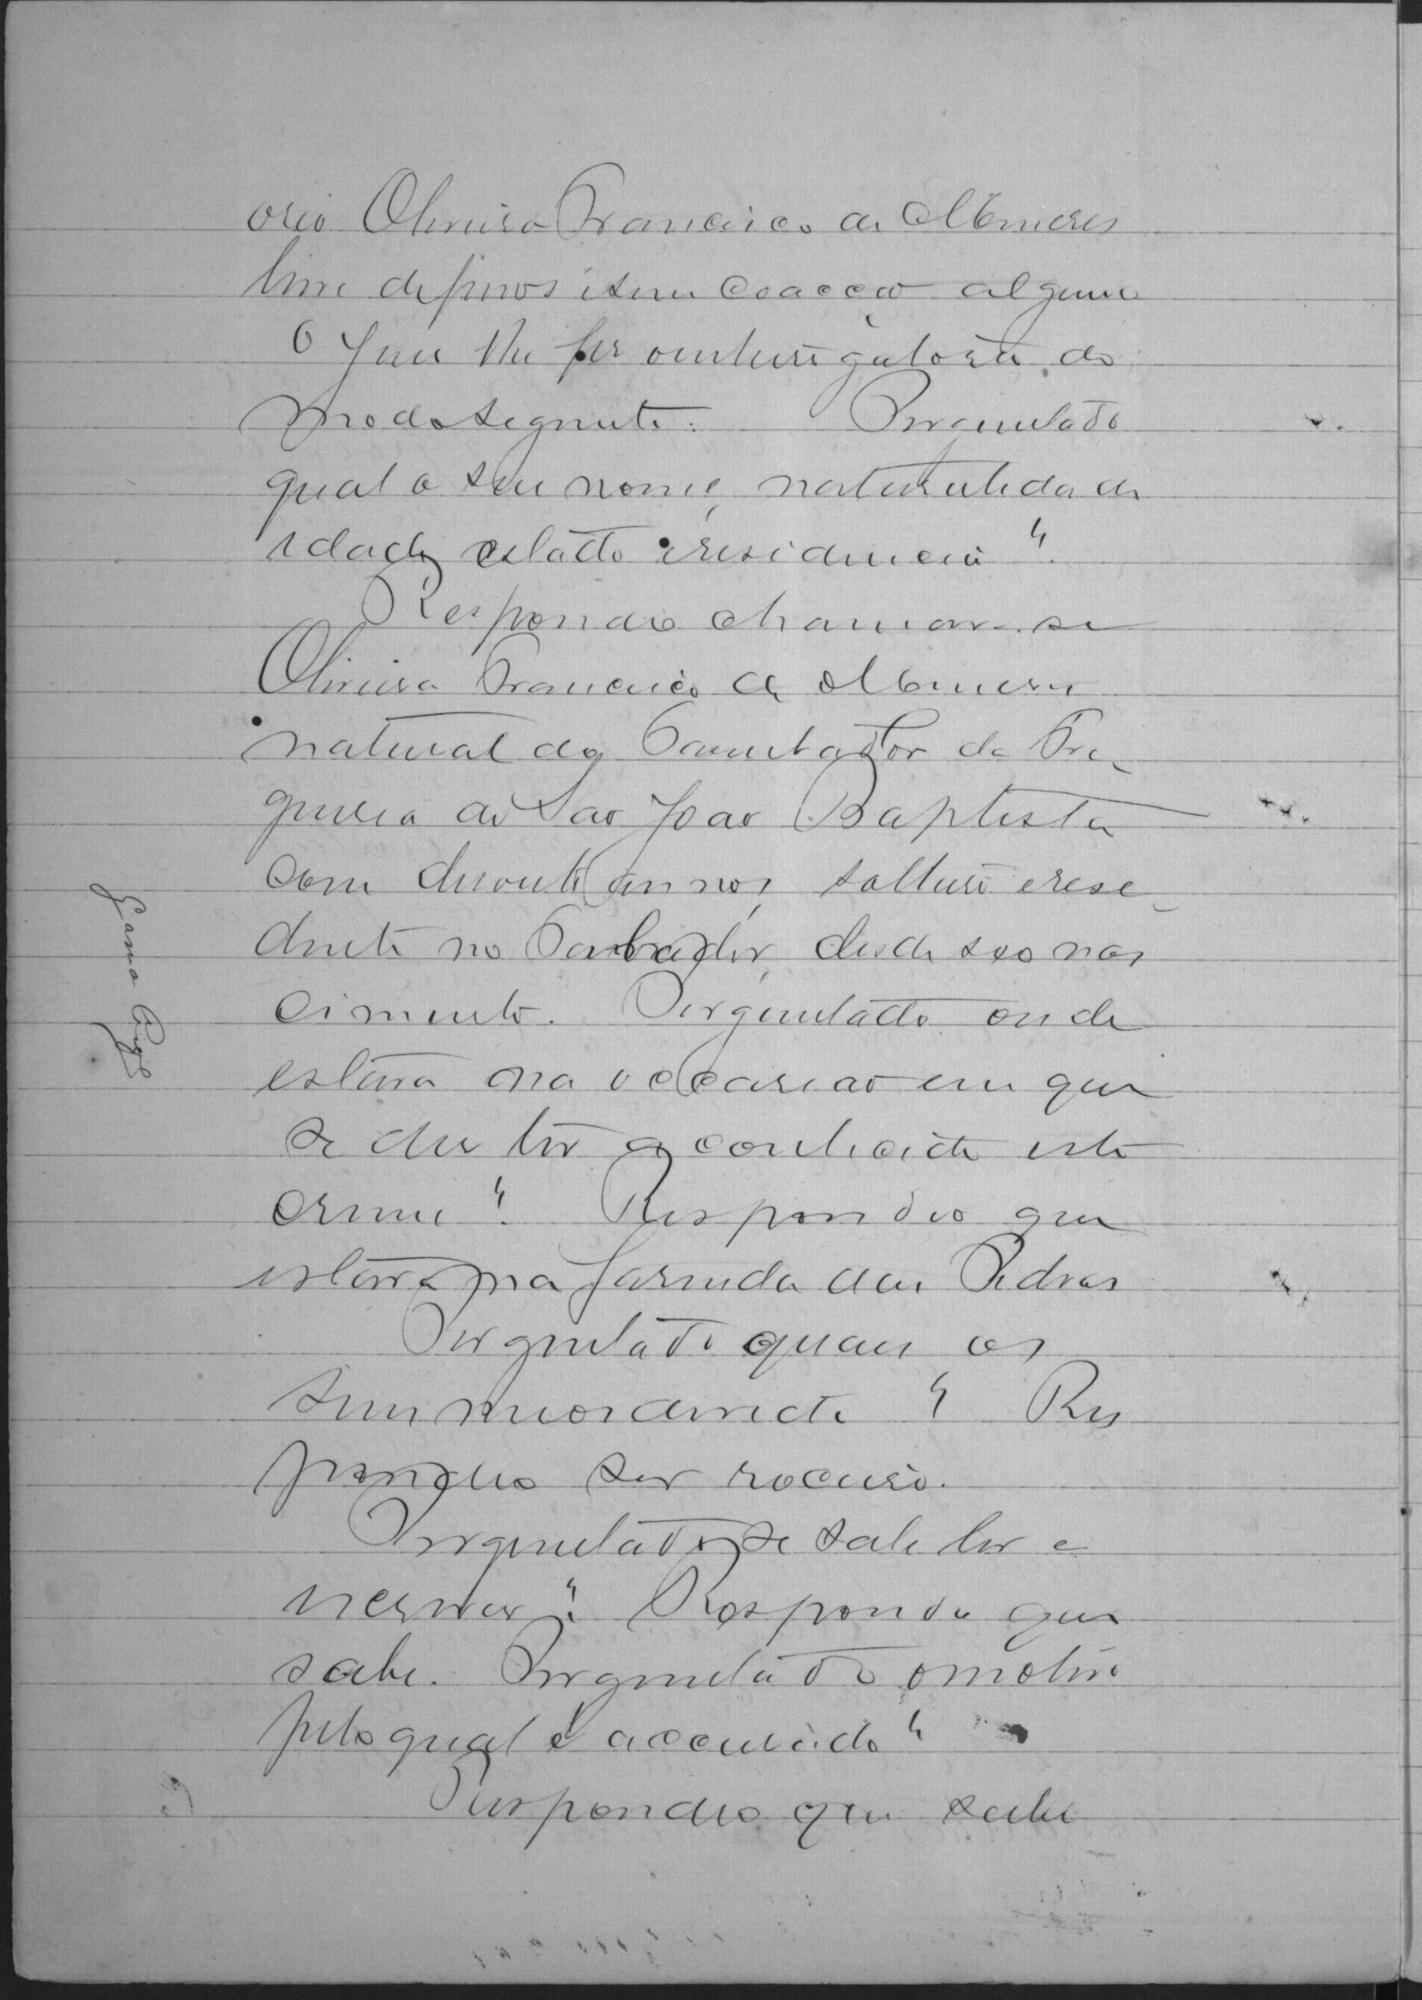 oréo Oliveira Francisco de Menezes
livre de ferros e sem coacção alguma
o Juiz lhe fez o interrogatorio do
modo seguinte: Perguntado
qual o seu nome, naturalidade
idade, estado e residencia?
Respondeo chamar-se
Oliveira Francisco de Menezes
natural do da Fre-
guesia de São João Baptista
com annos, solteiro e resi-
dente no desde seo nas
cimento. Perguntado onde
estava na occasião em que
se diz ter acontecido este
crime? Respondeo que
estava na fazenda das Pedras
Perguntado quaes os
seus meios de vida? Res
pondeo ser roceiro.
Perguntado se sabe ler e
escrever? Respondeo que
sabe. Perguntado o motivo
pelo qual é accusado?
Respondeo que sabe
Gama